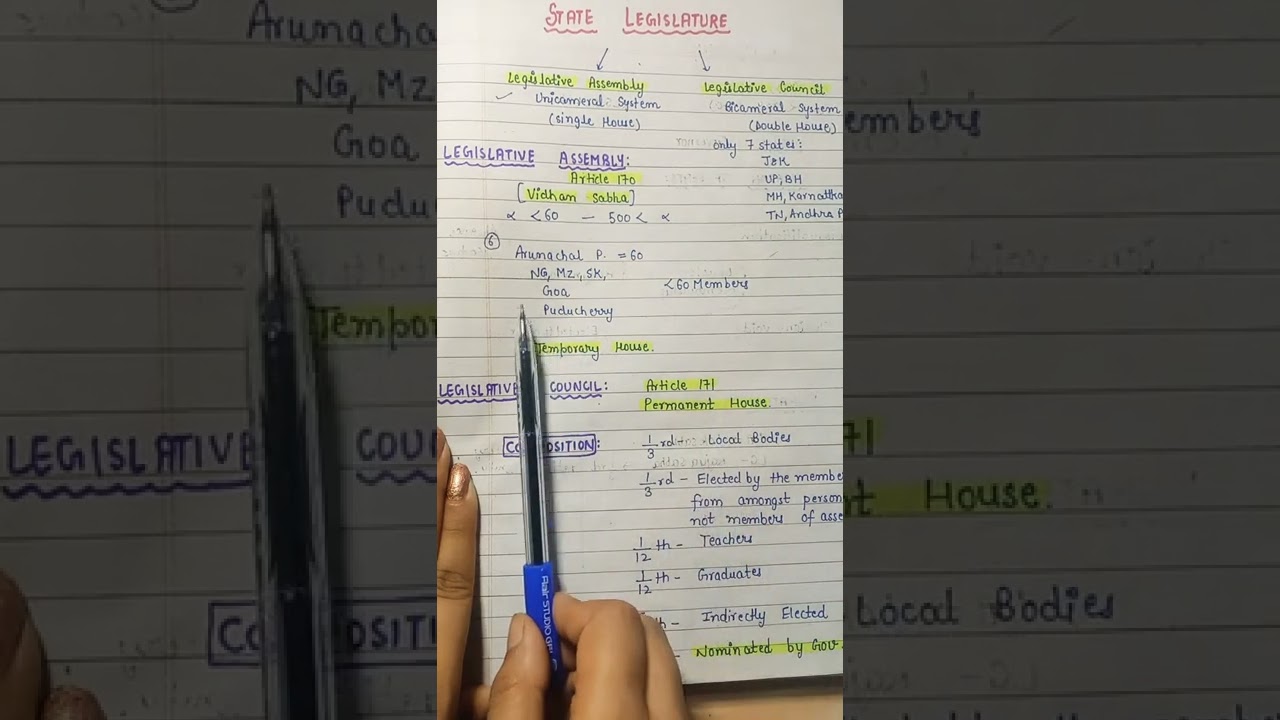 STATE LEGISLATURE
Legislative Assembly
Unicameral System
(Single House)
Legislative Council
Bicameral System
(Double House)
only 7 states:
J&K
UP, BH
MH, Karnatka
TN, Andhra P
LEGISLATIVE ASSEMBLY:
Article 170
[Vidhan Sabha]
∝ <60 — 500< ∝
6
Arunachal P. = 60
NG, Mz, SK,
Goa
Puducherry
<60 Members
Temporary House.
LEGISLATIVE COUNCIL:
Article 171
Permanent House.
COMPOSITION:
1/3 rd - Local Bodies
1/3 rd - Elected by the member
from amongst person
not members of asse
1/12 th - Teachers
1/12 th - Graduates
th - Indirectly Elected
- Nominated by Gov.
Arunacha
NG, Mz
Goa
Pudu
Tempor
LEGISLATIVE COU
CO OSITI
embers
71
nt House.
Local Bodies